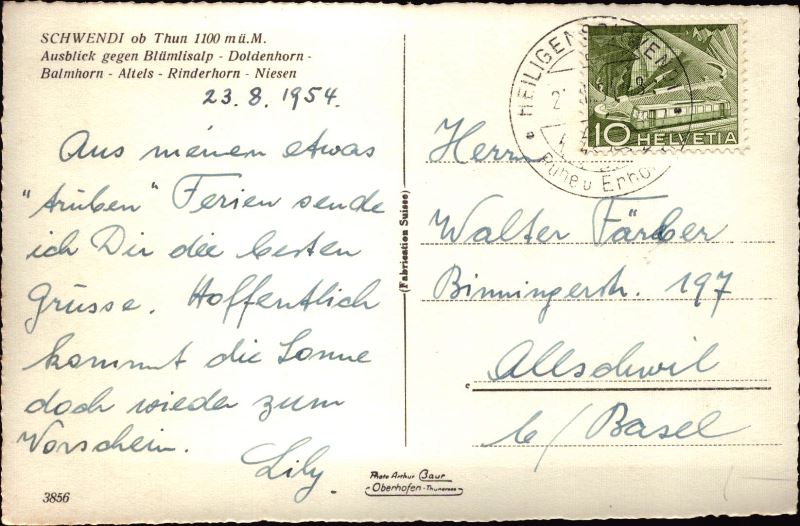 SCHWENDI ob Thun 1100 mü.M.
Ausblick gegen Blümlisalp - Doldenhorn -
Balmhorn - Altels - Rinderhorn - Niesen
23.8.1954.
Aus meinen etwas
"trüben" Ferien sende
ich Dir die besten
Grüsse. Hoffentlich
kommt die Sonne
doch wieder zum
Vorschein.
Lily.
3856
(Fabrication Suisse)
Photo Arthur Baur
Oberhofen - Thunersee
HEILIGENSCHWENDI
10 HELVETIA
Herrn
Walter Färber
Binningerstr. 197
Allschwil
b/Basel